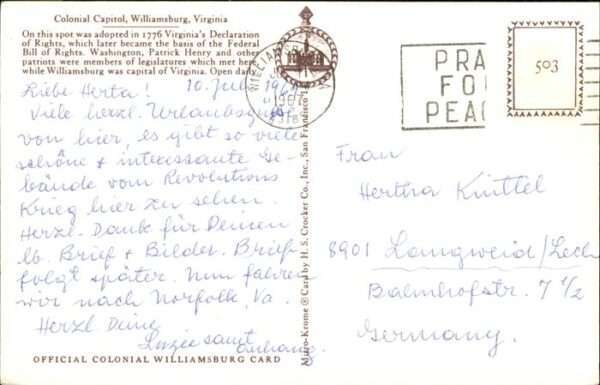 Colonial Capitol, Williamsburg, Virginia
On this spot was adopted in 1776 Virginia's Declaration
of Rights, which later became the basis of the Federal
Bill of Rights. Washington, Patrick Henry and other
patriots were members of legislatures which met here
while Williamsburg was capital of Virginia. Open daily.
Liebe Herta! 10. Juli 1967
Viele herzl. Urlaubsgrüße
von hier, es gibt so viele
schöne + interessante Ge-
bäude vom Revolutions
Krieg hier zu sehen.
Herzl. Dank für Deinen
lb. Brief + Bilder. Brief
folgt später. Nun fahren
wir nach Norfolk, Va.
Herzl. Deine
samt
Anhang.
OFFICIAL COLONIAL WILLIAMSBURG CARD
Mirro-Krome ® Card by H. S. Crocker Co., Inc., San Francisco
WILLIAMSBURG
1967
PRA
FO
PEAC
503
Frau
Hertha Knittel
8901 Langweid/Lech
Bahnhofstr. 7 1/2
Germany.